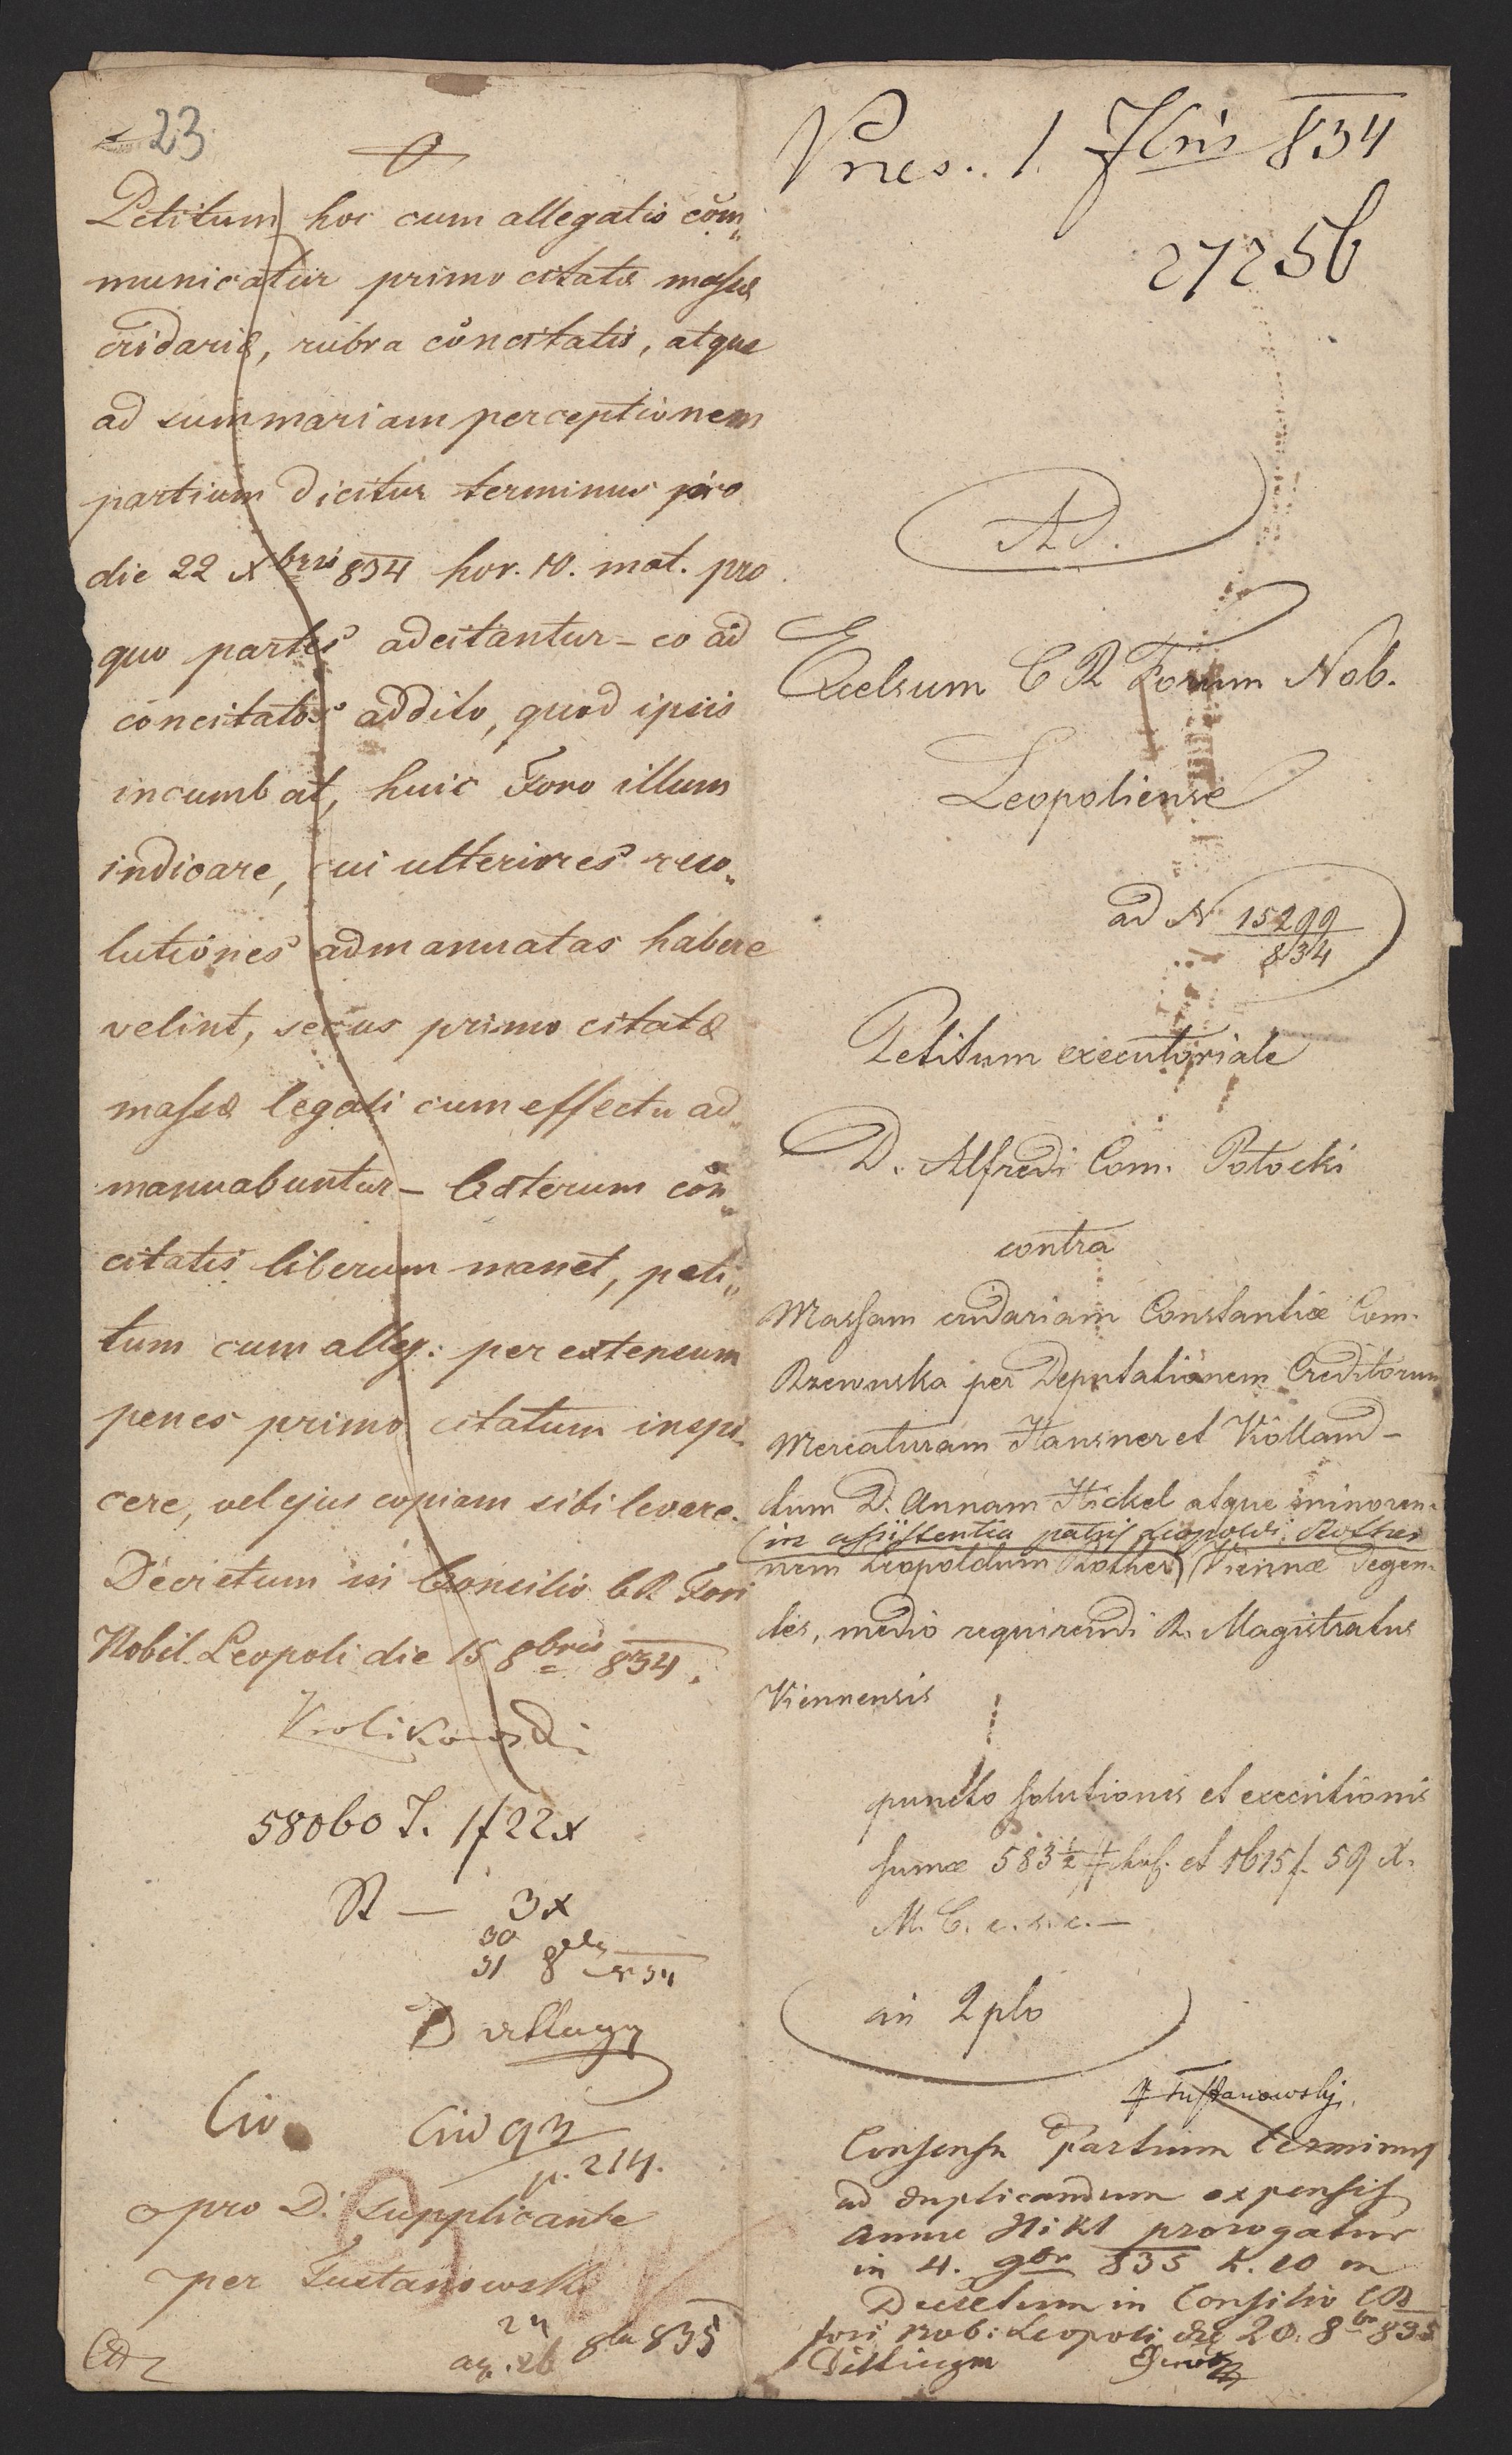 23
Petitum hoc cum allegatis com„
municatur primo citatæ massæ
cridariæ, rubra concitatis, atque
ad summariam perceptionem
partium dicitur terminus pro
die 22 Xbris 834 hor. 10. mat. pro
quo partes adcitantur – eo ad
concitatos addito, quod ipsis
incumbat, huic Foro illum
indicare, cui ulteriores reso„
lutiones admanuatas habere
velint, secus primo citatæ
massæ legali cum effectu ad„
manuabuntur – Cæterum con„
citatis liberum manet, peti„
tum cum alleg: per extensum
penes primo citatum inspi„
cere, vel ejus copiam sibi levare.
Decretum in Consilio CR Fori
Nobil. Leopoli die 15 8bris 834.
Krolikowski
58060 T. 1f 22x
R — 3x
30
31 834
Civ.
p. 214.
pro D. Supplicante
per Tustanowski
24
26 8br 835
Pres. 1. 7bris 834
27256
Ad.
Excelsum C R Forum Nob.
Leopoliense
ad N 15299
834
Petitum executoriale
D. Alfredi Com. Potocki
contra
Massam cridariam Constantiæ Com.
Rzewuska per Deputationem Creditorum
Mercaturam Hausner et Violland –
tum D. Annam Hickel atque minoren„
(in assistentia patris Leopoldi Rother
nem Leopoldum Rother) Viennæ degen„
tes, medio requirendi R. Magistratus
Viennensis
puncto solutionis et executionis
sumæ 583½ # hol. et 1615 f. 59 x.
M. C. c. s. c. —
in 2plo
Tustanowski.
Consensu Partium terminus
ad duplicandum expensis
Annæ Hikl prorogatur
in 4. 9br 835 h. 10 m
Decretum in Consilio CR
fori nob: Leopoli die 20. 8br 835